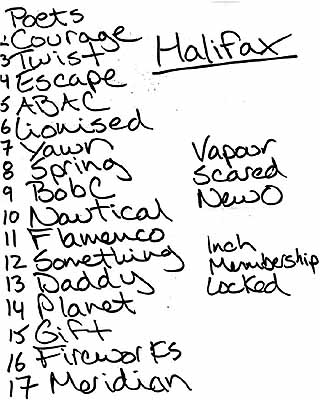 Poets
2 Courage
3 Twist
4 Escape
5 ABAC
6 Lionised
7 Yawn
8 Spring
9 BobC
10 Nautical
11 Flamenco
12 Something
13 Daddy
14 Planet
15 Gift
16 Fireworks
17 Meridian
Halifax
Vapour
Scared
NewO
Inch
Membership
Locked